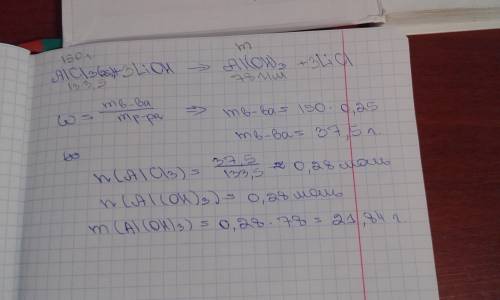 150 г m
AlCl3(р) + 3LiOH → Al(OH)3 + 3LiCl
133,5 78 г/моль
ω = mв-ва / mр-ра ⇒ mв-ва = 150 · 0,25
mв-ва = 37,5 г.
n(AlCl3) = 37,5 / 133,5 ≈ 0,28 моль
n(Al(OH)3) = 0,28 моль
m(Al(OH)3) = 0,28 · 78 = 21,84 г.